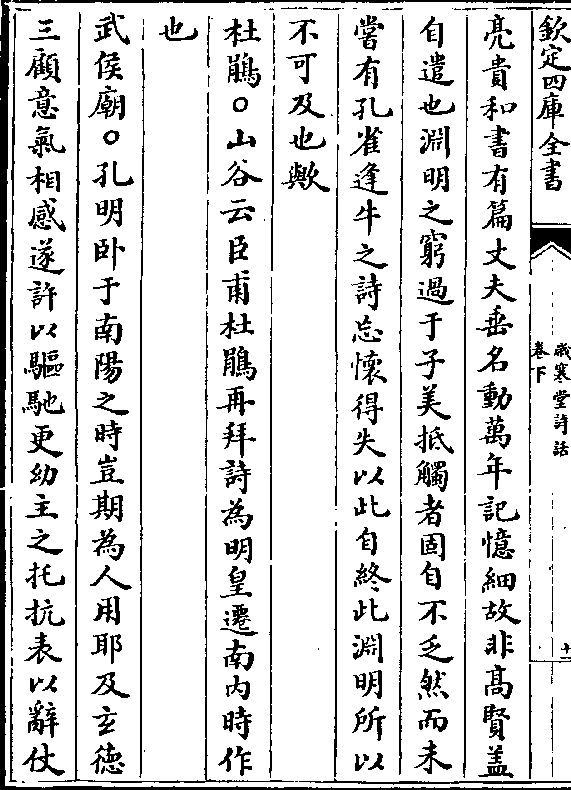 欽定四庫全書
歲寒堂詩話
卷下
十一
亮貴和書有篇丈夫垂名動萬年記憶細故非高賢盖
自遣也淵明之窮過于子美抵觸者固自不乏然而未
嘗有孔雀逢牛之詩忘懷得失以此自終此淵明所以
不可及也歟
杜鵑○山谷云臣甫杜鵑再拜詩為明皇遷南内時作
也
武侯廟○孔明卧于南陽之時豈期為人用耶及玄德
三顧意氣相感遂許以驅馳更幼主之托抗表以辭仗